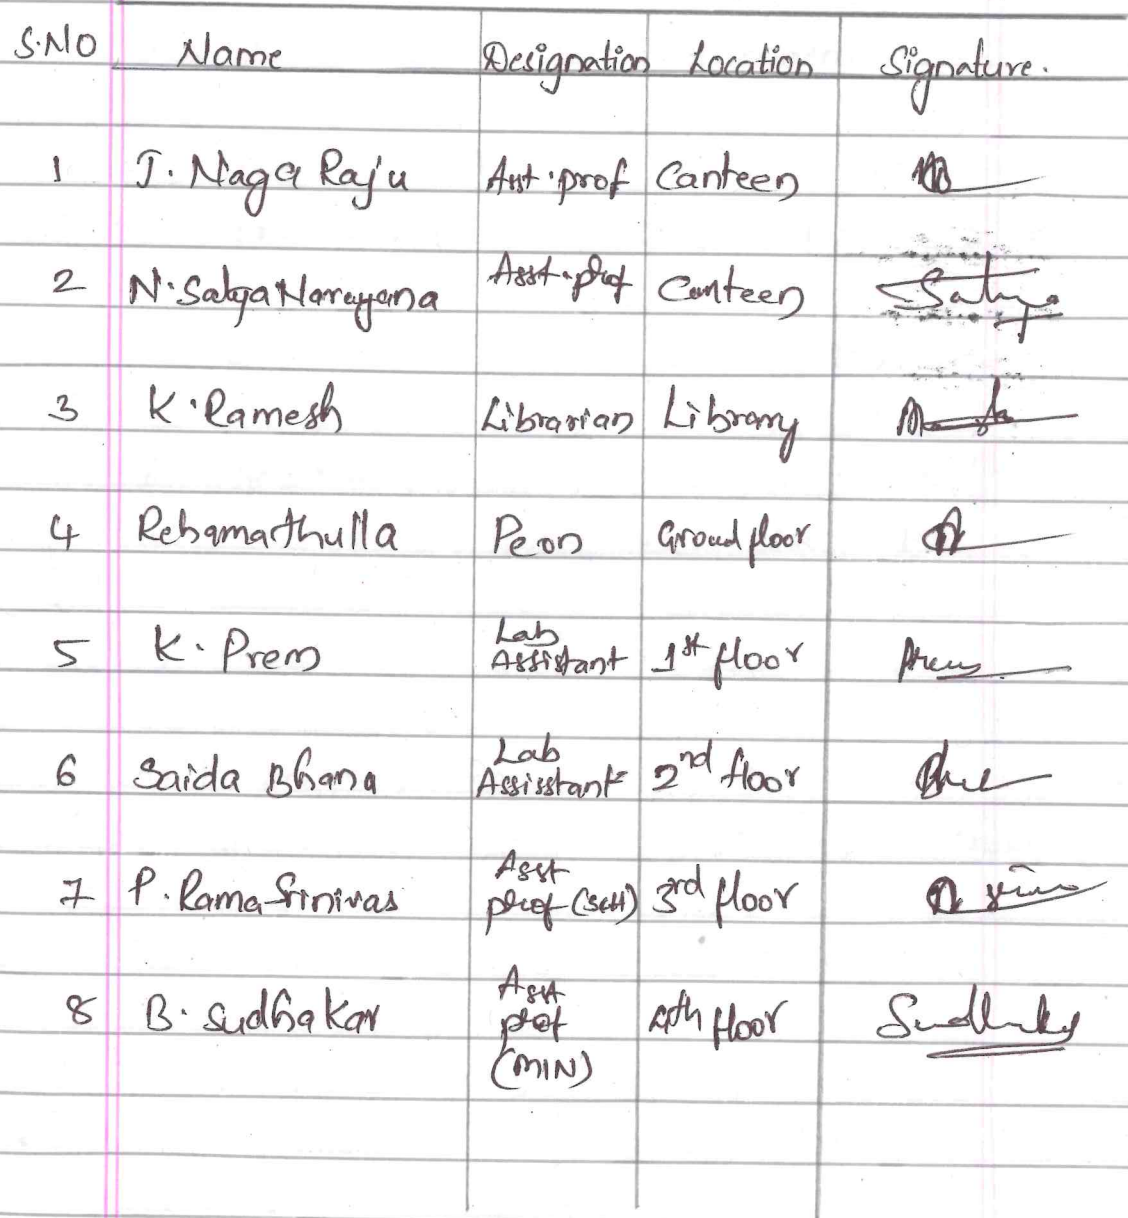 S.NO Name Designation Location Signature.
1 J. Naga Raju Asst. prof Canteen
2 N. Satya Narayana Asst. prof Canteen Satya
3 K. Ramesh Librarian Library
4 Rehamathulla Peon Groud floor
5 K. Prem Lab Assistant 1st floor Prem
6 Saida Bhanu Lab Assisstant 2nd floor
7 P. Rama Srinivas Asst prof (S&H) 3rd floor
8 B. Sudhakar Asst prof (MIN) 4th floor Sudhakar